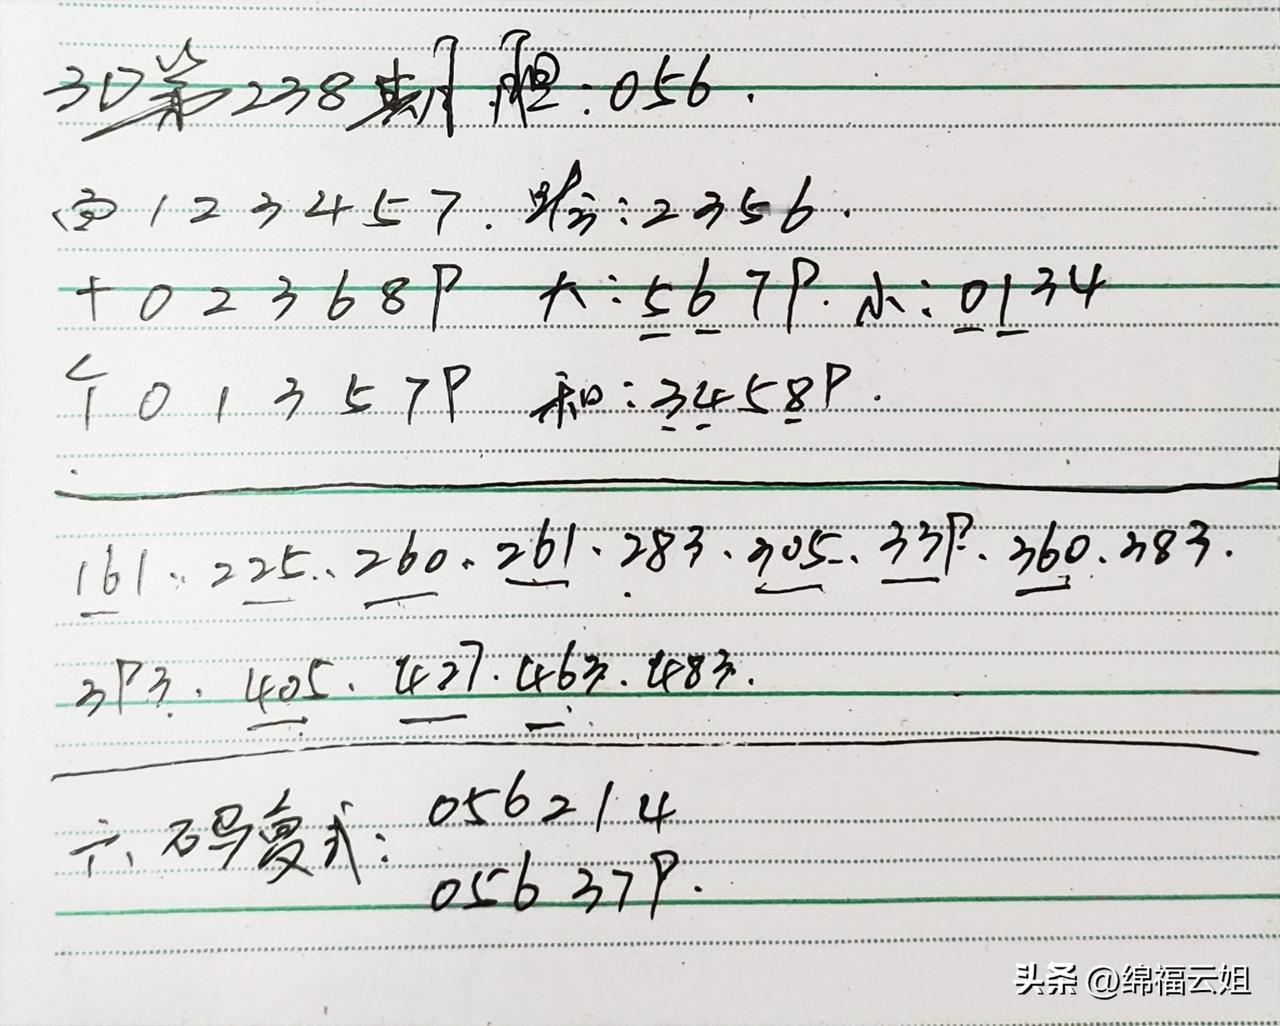 3D第238期 胆:056.
百123457. 跨:2356.
十02368P 大:567P. 小:0134
个01357P 和:3458P.
161. 225. 260. 261. 283. 305. 33P. 360. 383.
3P3. 405. 427. 463. 483.
六码复式: 056214
05637P.
头条 @绵福云姐